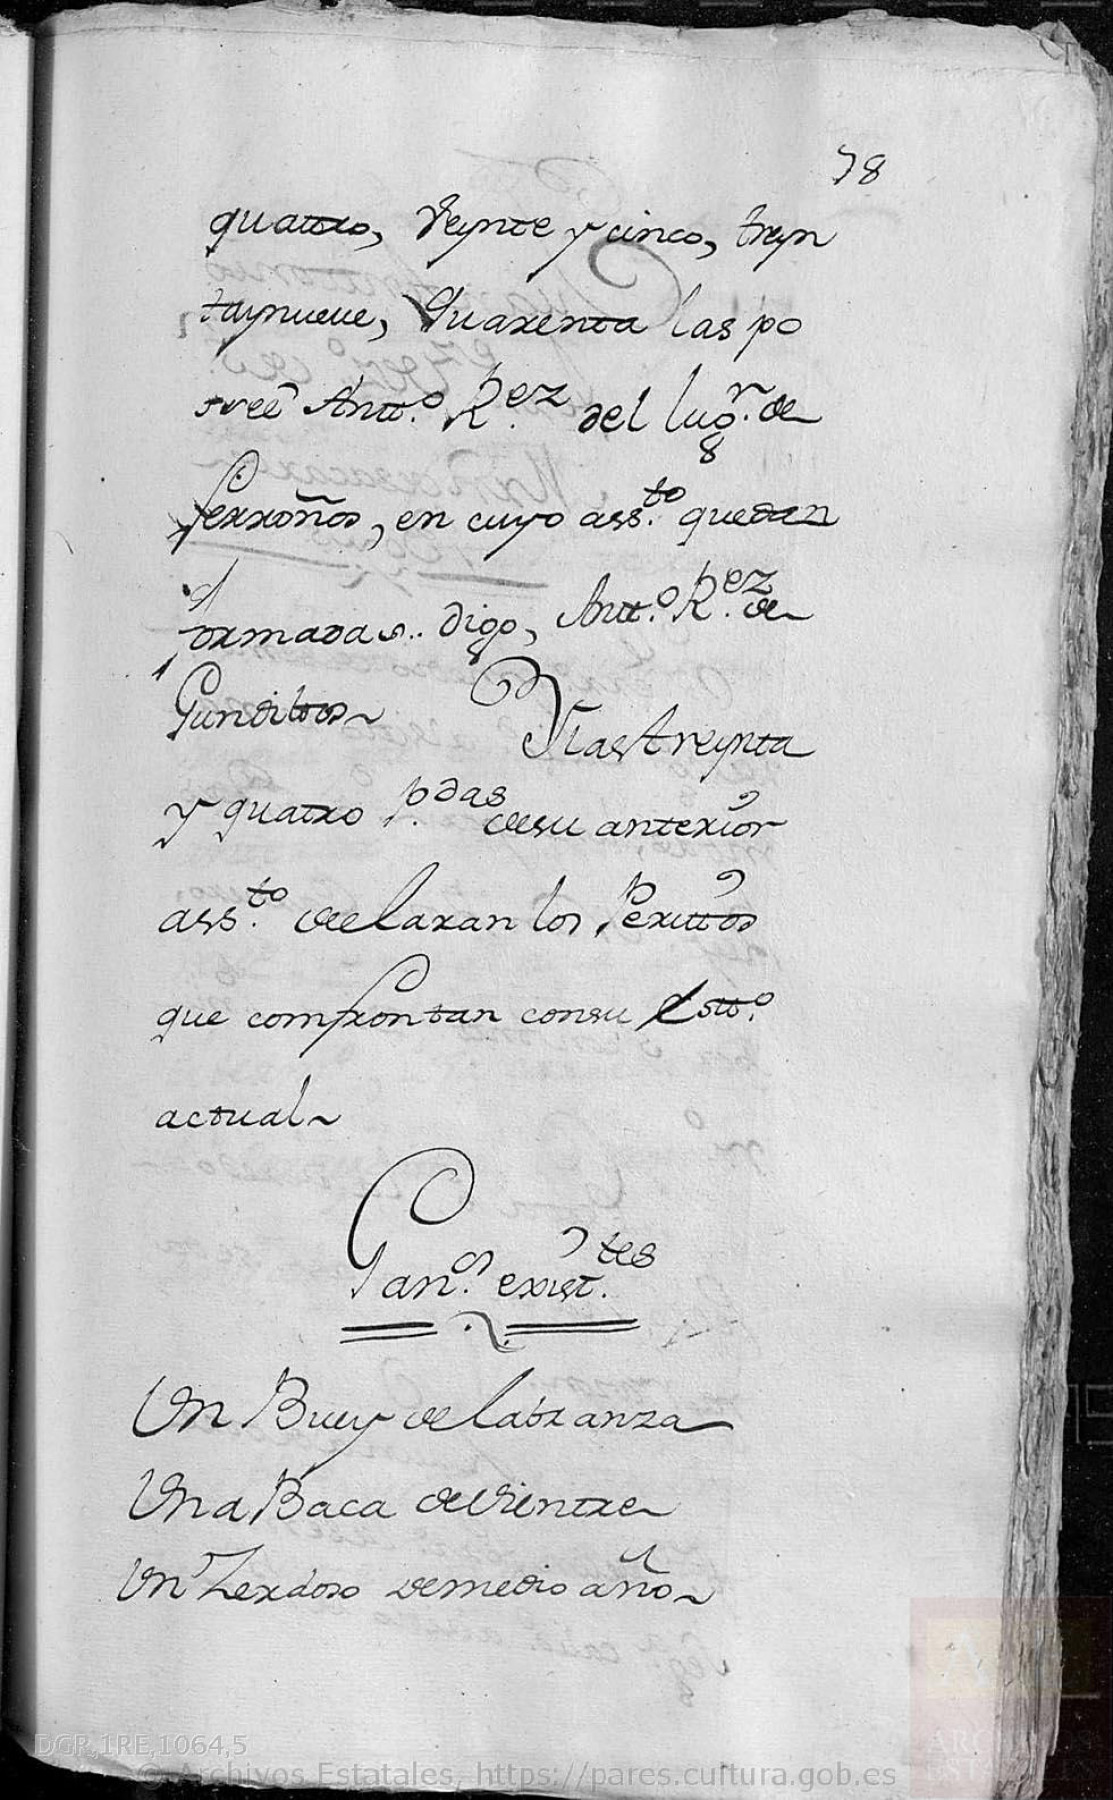 78
quattro, Veynte y cinco, treyn
taynueve, Quarenta las po
see Antt.o R.ez del lug.r de
ferroños, en cuyo ass.to quedan
formadas.. digo, Antt.o R.ez de
Gundittos~ Ylas treynta
y quatro p.das desu anterior
ass.to declaran los Peritos
que comfrontan consu Estt.o
actual~
Gan.os exist.tes
Un Buey de labranza
Una Baca deVientre
Un Zerdoso demedio año~
DGR,1RE,1064,5
© Archivos Estatales, https://pares.cultura.gob.es